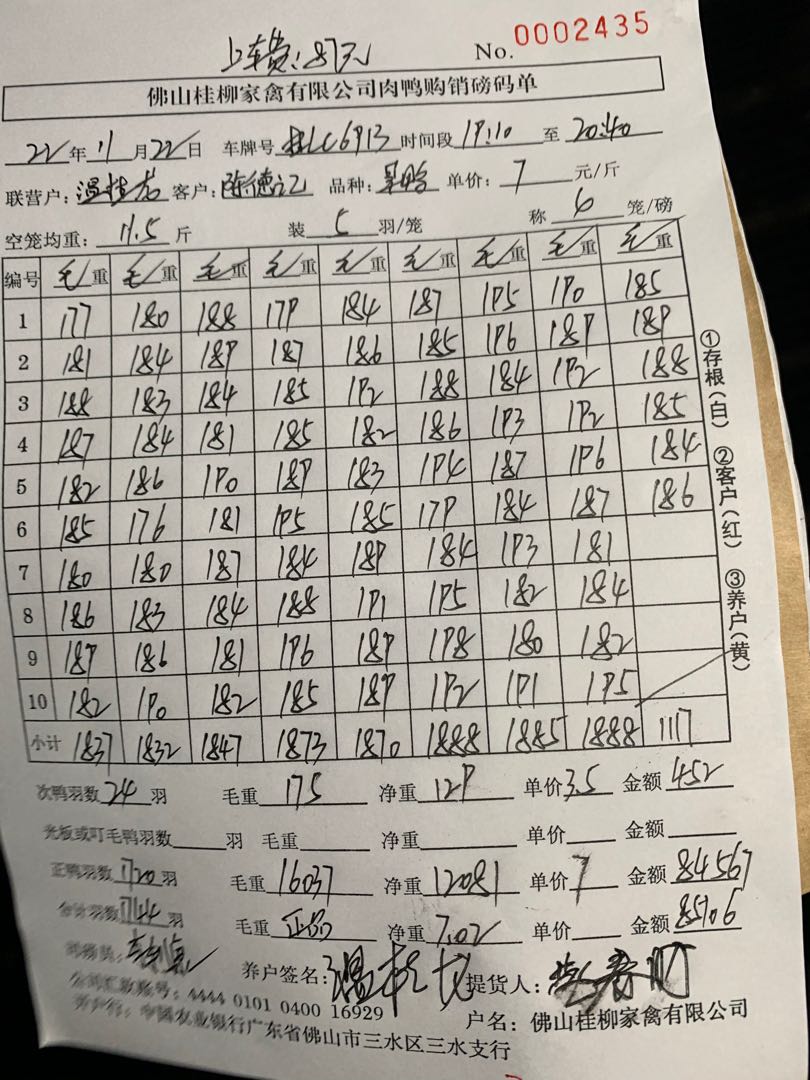 上车费:87元
No. 0002435
佛山桂柳家禽有限公司肉鸭购销磅码单
22年11月22日 车牌号 桂LC6913 时间段 19:10 至 20:40
联营户: 温桂龙 客户: 陈德记 品种: 单价: 7 元/斤
空笼均重: 11.5 斤 装 5 羽/笼 称 6 笼/磅
编号 毛/重 毛/重 毛/重 毛/重 毛/重 毛/重 毛/重 毛/重 毛/重
1 177 180 188 179 184 187 195 190 185
2 181 184 189 187 186 185 196 189 189
3 188 183 184 185 192 188 184 192 188
4 187 184 181 185 182 186 193 192 185
5 182 186 190 189 183 194 187 196 184
6 185 176 181 195 185 179 184 187 186
7 180 180 187 184 189 184 193 181
8 186 183 184 188 191 195 182 184
9 189 186 181 196 189 198 180 182
10 182 190 182 185 189 192 191 195
小计 1837 1832 1847 1873 1870 1888 1885 1888 1117
次鸭羽数 24 羽 毛重 175 净重 129 单价 3.5 金额 452
光板或叮毛鸭羽数 羽 毛重 净重 单价 金额
正鸭羽数 1720 羽 毛重 16037 净重 12081 单价 7 金额 84567
合计羽数 1744 羽 毛重 正品 净重 7.02 单价 金额 85106
司磅员: 养户签名: 温桂龙 提货人:
公司汇款账号: 4444 0101 0400 16929 户名: 佛山桂柳家禽有限公司
开户行: 中国农业银行广东省佛山市三水区三水支行
①存根(白) ②客户(红) ③养户(黄)